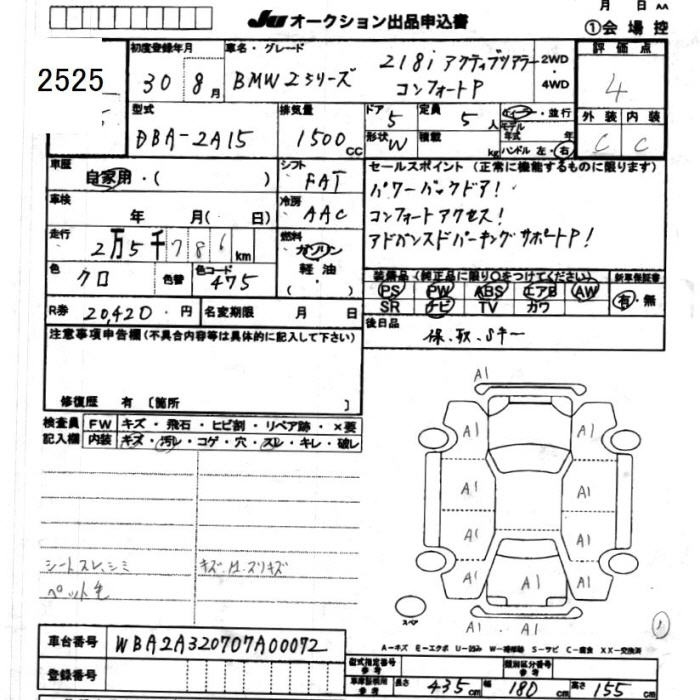 月 日
JU オークション出品申込書
①会場控
2525
初度登録年月
30 8月
車名・グレード
BMW 2シリーズ
218i アクティブツアラー
コンフォートP
2WD
・
4WD
評価点
4
型式
DBA-2A15
排気量
1500cc
ドア
5
形状
W
定員
5人
積載
kg
・並行
モデル
年式 年
ハンドル 左・右
外装 内装
C C
車歴
自家用・( )
シフト
FAT
セールスポイント(正常に機能するものに限ります)
パワーバックドア!
コンフォートアクセス!
アドバンスドパーキングサポートP!
車検
年 月( 日)
冷房
AAC
走行
2万5千786km
燃料
ガソリン
軽油
( )
色
クロ
色替
色コード
475
装備品(純正品に限り○をつけてください)
PS PW ABS エアB AW
SR ナビ TV カワ
新車保証書
有・無
R券 20,420円
名変期限 月 日
後日品
保、取、Sキー
注意事項申告欄(不具合内容等は具体的に記入して下さい)
修復歴 有〔箇所 〕
検査員
記入欄
FW キズ・飛石・ヒビ割・リペア跡・×要
内装 キズ・汚レ・コゲ・穴・スレ・キレ・破レ
シートスレ、シミ
ペット毛
キズ、H、スリキズ
A1
A1 A1
A1 A1
A1 A1
A1 A1 A1
A1 A1
スペア
1
A-キズ E-エクボ U-凹み W-補修跡 S-サビ C-腐食 XX-交換済
車台番号 WBA2A320707A00072
登録番号
型式指定番号
参考
類別区分番号
参考
車庫証明用
参考
長さ 435cm 幅 180cm 高さ 155cm